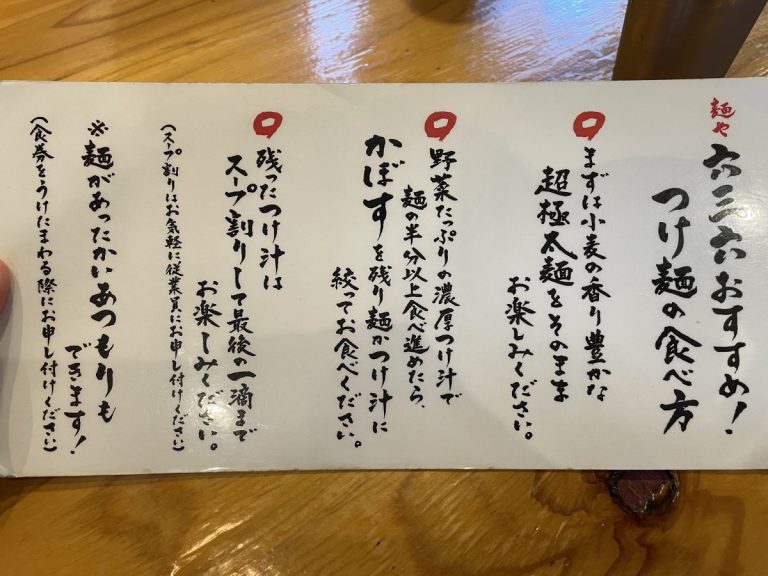 麺や 六三六おすすめ！
つけ麺の食べ方
まずは小麦の香り豊かな
超極太麺をそのまま
お楽しみください。
野菜たっぷりの濃厚つけ汁で
麺の半分以上食べ進めたら、
かぼすを残り麺かつけ汁に
絞ってお食べください。
残ったつけ汁は
スープ割りして最後の一滴まで
お楽しみください。
（スープ割りはお気軽に従業員にお申し付けください）
※麺があったかいあつもりも
できます！
（食券をうけたまわる際にお申し付けください）